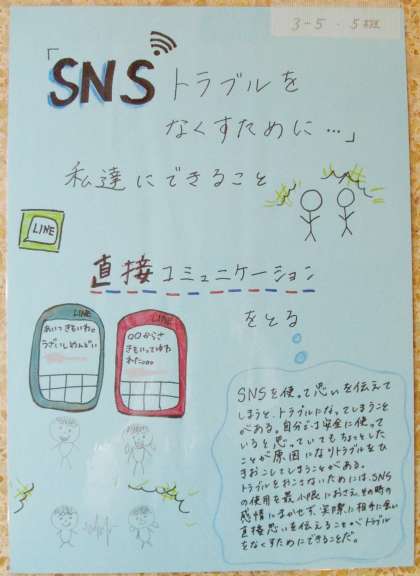 3-5.5班
「SNSトラブルを
なくすために…」
私達にできること
LINE
直接コミュニケーション
をとる
LINE
あいつきもいわぁ
うざいしめんどい
LINE
〇〇からさ
きもいってゆわ
れた。。。
SNSを使って思いを伝えて
しまうと、トラブルになってしまうこと
がある。自分では安全に使って
いると思っていてもちょっとした
ことが原因になりトラブルをひ
きおこしてしまうことがある。
トラブルをおこさないためには、SNS
の使用を最小限におさえ、その時の
感情にまかせず、実際に相手に会い
直接思いを伝えることがトラブル
をなくすためにできることだ。